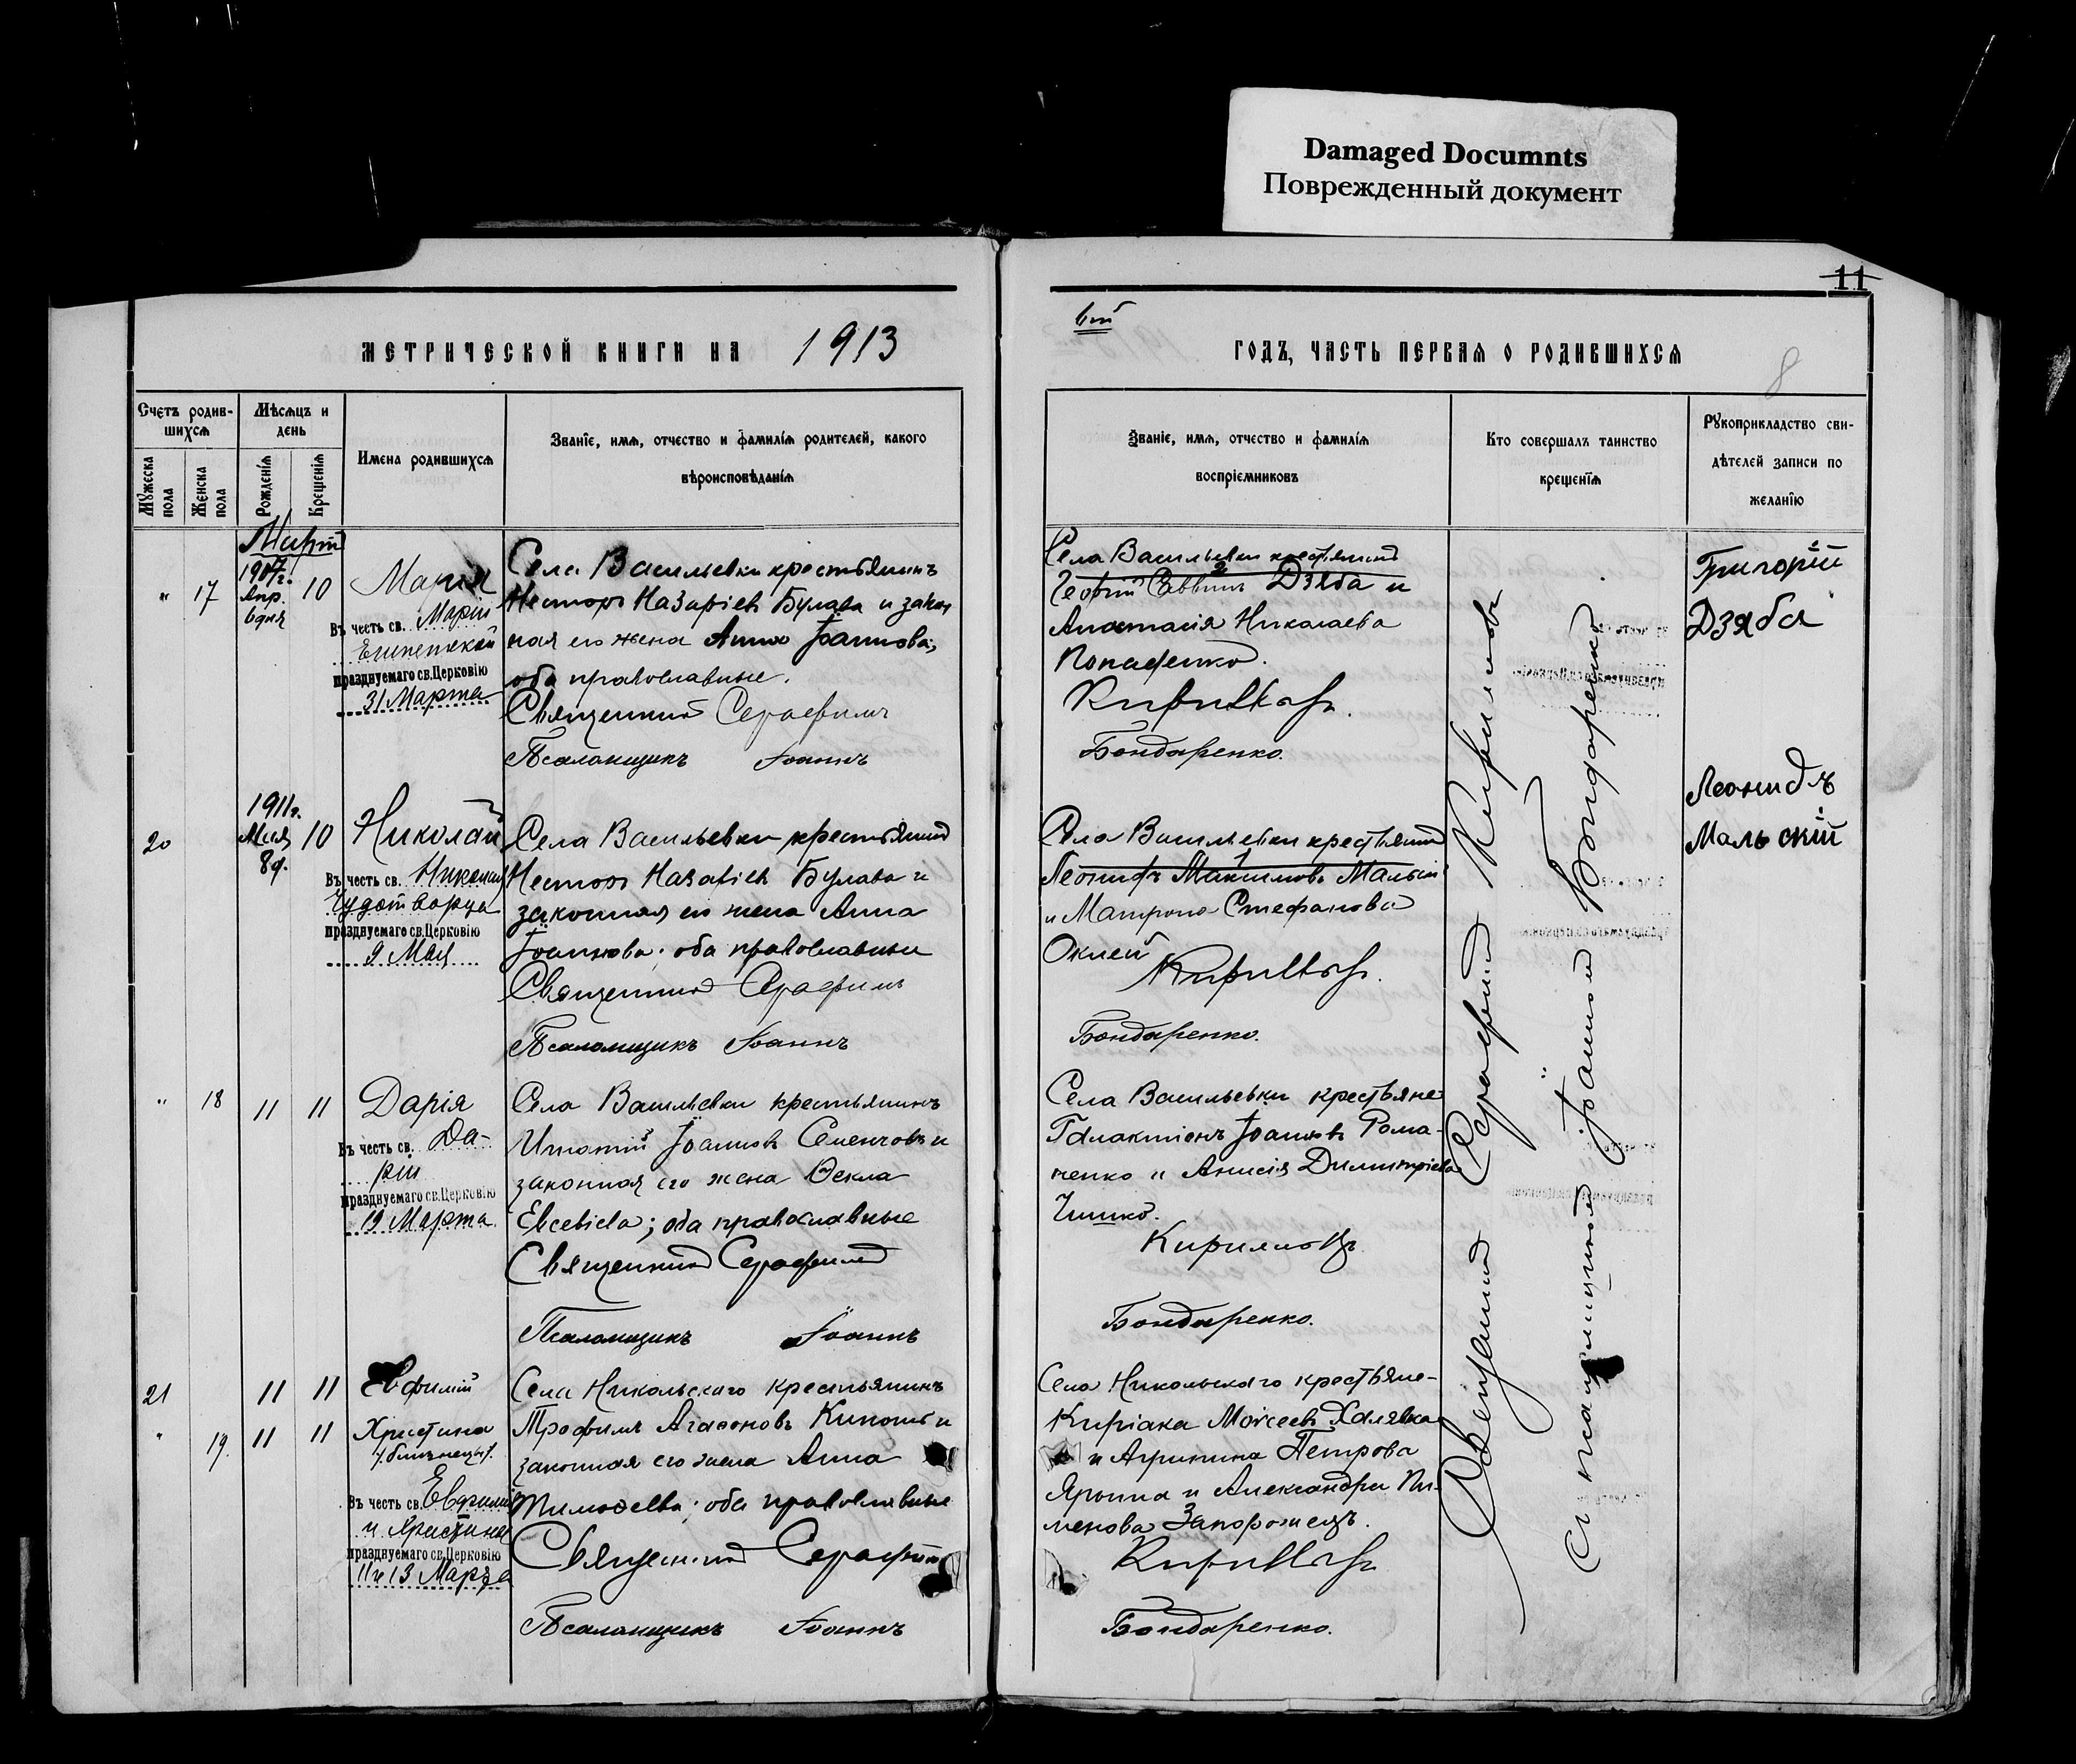 Damaged Documnts
Поврежденный документ
11
МЕТРИЧЕСКОЙ КНИГИ НА 1913
ГОДЪ, ЧАСТЬ ПЕРВАЯ О РОДИВШИХСЯ
8
Счетъ родив-
шихся
Мѣсяцъ и
день
Мужеска
пола
Женска
пола
Рожденія
Крещенія
Имена родившихся
Званіе, имя, отчество и фамилія родителей, какого
вѣроисповѣданія
Званіе, имя, отчество и фамилія
воспріемниковъ
Кто совершалъ таинство
крещенія
Рукоприкладство сви-
дѣтелей записи по
желанію
Мартъ
" 17
1907г.
Апр.
6 дня
10
Марія
Въ честь св. Маріи
Египетской
празднуемаго св. Церковію
31 Марта
Села Васильевки крестьянинъ
Несторъ Назаріевъ Булава и закон
ная его жена Анна Іоаннова;
оба православные.
Священникъ Серафимъ
Псаломщикъ Іоаннъ
Села Васильевки крестьянинъ
Саввинъ Дзяба и
Анастасія Николаева
Попаденко.
Кирилловъ.
Бондаренко.
Григорій
Дзяба
20
1911г.
Мая
8д.
10
Николай
Въ честь св. Николая
Чудотворца
празднуемаго св. Церковію
9 Мая
Села Васильевки крестьянинъ
Несторъ Назаріевъ Булава и
законная его жена Анна
Іоаннова; оба православные
Священникъ Серафимъ
Псаломщикъ Іоаннъ
Села Васильевки крестьянинъ
Леонидъ Максимовъ Малый
и Матрона Стефанова
Оклей
Кирилловъ.
Бондаренко.
Леонидъ
Мальскій
" 18 11 11
Дарія
Въ честь св. Да-
ріи
празднуемаго св. Церковію
19 Марта
Села Васильевки крестьянинъ
Игнатій Іоанновъ Семенчовъ и
законная его жена Ѳекла
Евсевіева; оба православные
Священникъ Серафимъ
Псаломщикъ Іоаннъ
Села Васильевки крестьяне
Галактіонъ Іоанновъ Рома-
ненко и Анисія Димитріева
Кирилловъ
Бондаренко.
21 11 11
Евфимій
" 19. 11 11
Христина
/близнецы/.
Въ честь св. Евфимія
и Христины
празднуемаго св. Церковію
11 и 13 Марта
Села Никольскаго крестьянинъ
Трофимъ Агаѳоновъ и
законная его жена Анна
Тимоѳеева; оба православные
Священникъ Серафимъ
Псаломщикъ Іоаннъ
Села Никольскаго крестьяне-
Киріакъ Моисеевъ Халявка
и Агрипина Петрова
и Александра Пи-
менова Запорожецъ.
Кирилловъ
Бондаренко.
Священникъ Серафимъ Кирилловъ
съ псаломщикомъ Іоанномъ Бондаренко